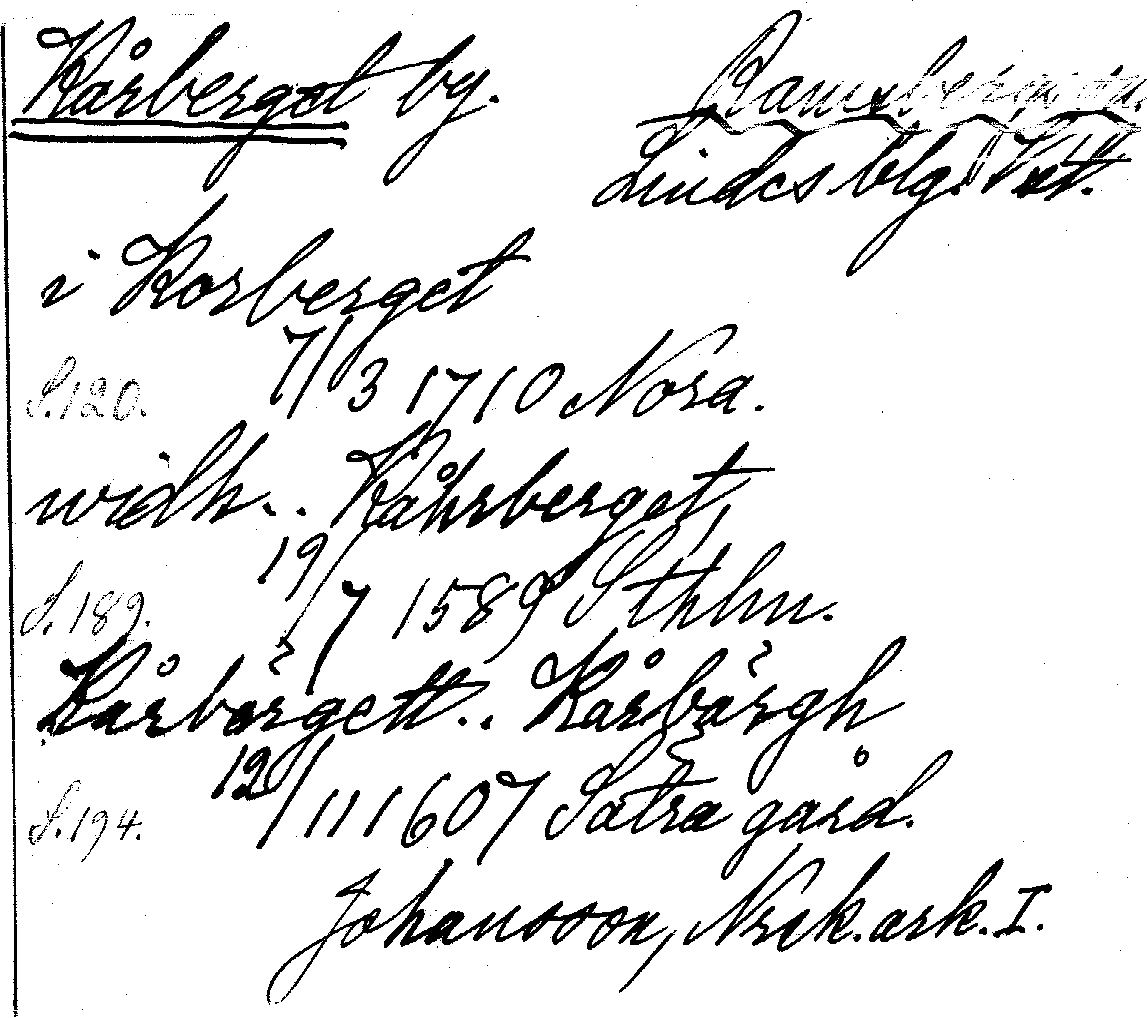 Kårberget by. Ramsbergs sn.
Lindes blg. Vstl.
i Korberget
S.120. 7/3 1710 Nora.
widh.. Kåhrberget,
S.189. 19/7 1589 Sthlm.
Kårbärgett.. Kårbärgh
S.194. 12/11 1607 Sätra gård.
Johansson, Nrik. ark. I.